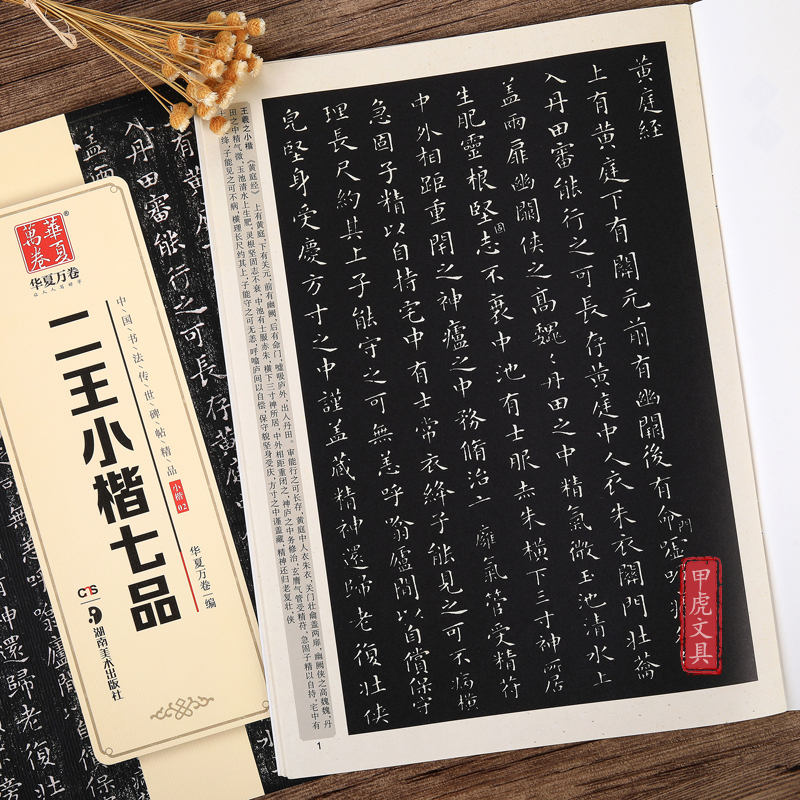 黄庭経
上有黄庭下有關元前有幽闕後有命門噓吸
入丹田審能行之可長存黄庭中人衣朱衣關門壮蘥
盖兩扉幽闕俠之高巍〻丹田之中精氣微玉池清水上
生肥靈根堅固志不衰中池有士服赤朱橫下三寸神所居
中外相距重閇之神廬之中務脩治廱氣管受精符
急固子精以自持宅中有士常衣絳子能見之可不病橫
理長尺約其上子能守之可無恙呼噏廬間以自償保守
皃堅身受慶方寸之中謹盖藏精神還歸老復壮俠
王羲之小楷《黄庭经》 上有黄庭,下有关元,前有幽阙,后有命门,嘘吸庐外,出入丹田。审能行之可长存,黄庭中人衣朱衣,关门壮籥盖两扉,幽阙侠之高巍巍,丹
田之中精气微,玉池清水上生肥,灵根坚固志不衰,中池有士服赤朱,横下三寸神所居,中外相距重闭之,神庐之中务修治,玄膺气管受精符,急固子精以自持,宅中有
士常衣绛,子能见之可不病,横理长尺约其上,子能守之可无恙,呼噏庐间以自偿,保守貌坚身受庆,方寸之中谨盖藏,精神还归老复壮,侠
1
甲虎文具
華夏萬卷®
华夏万卷
让人人写好字
中国书法传世碑帖精品
小楷 02
二王小楷七品
华夏万卷 编
CTS
湖南美术出版社
有黄庭
入丹田審能行之可長存黄庭
盖兩